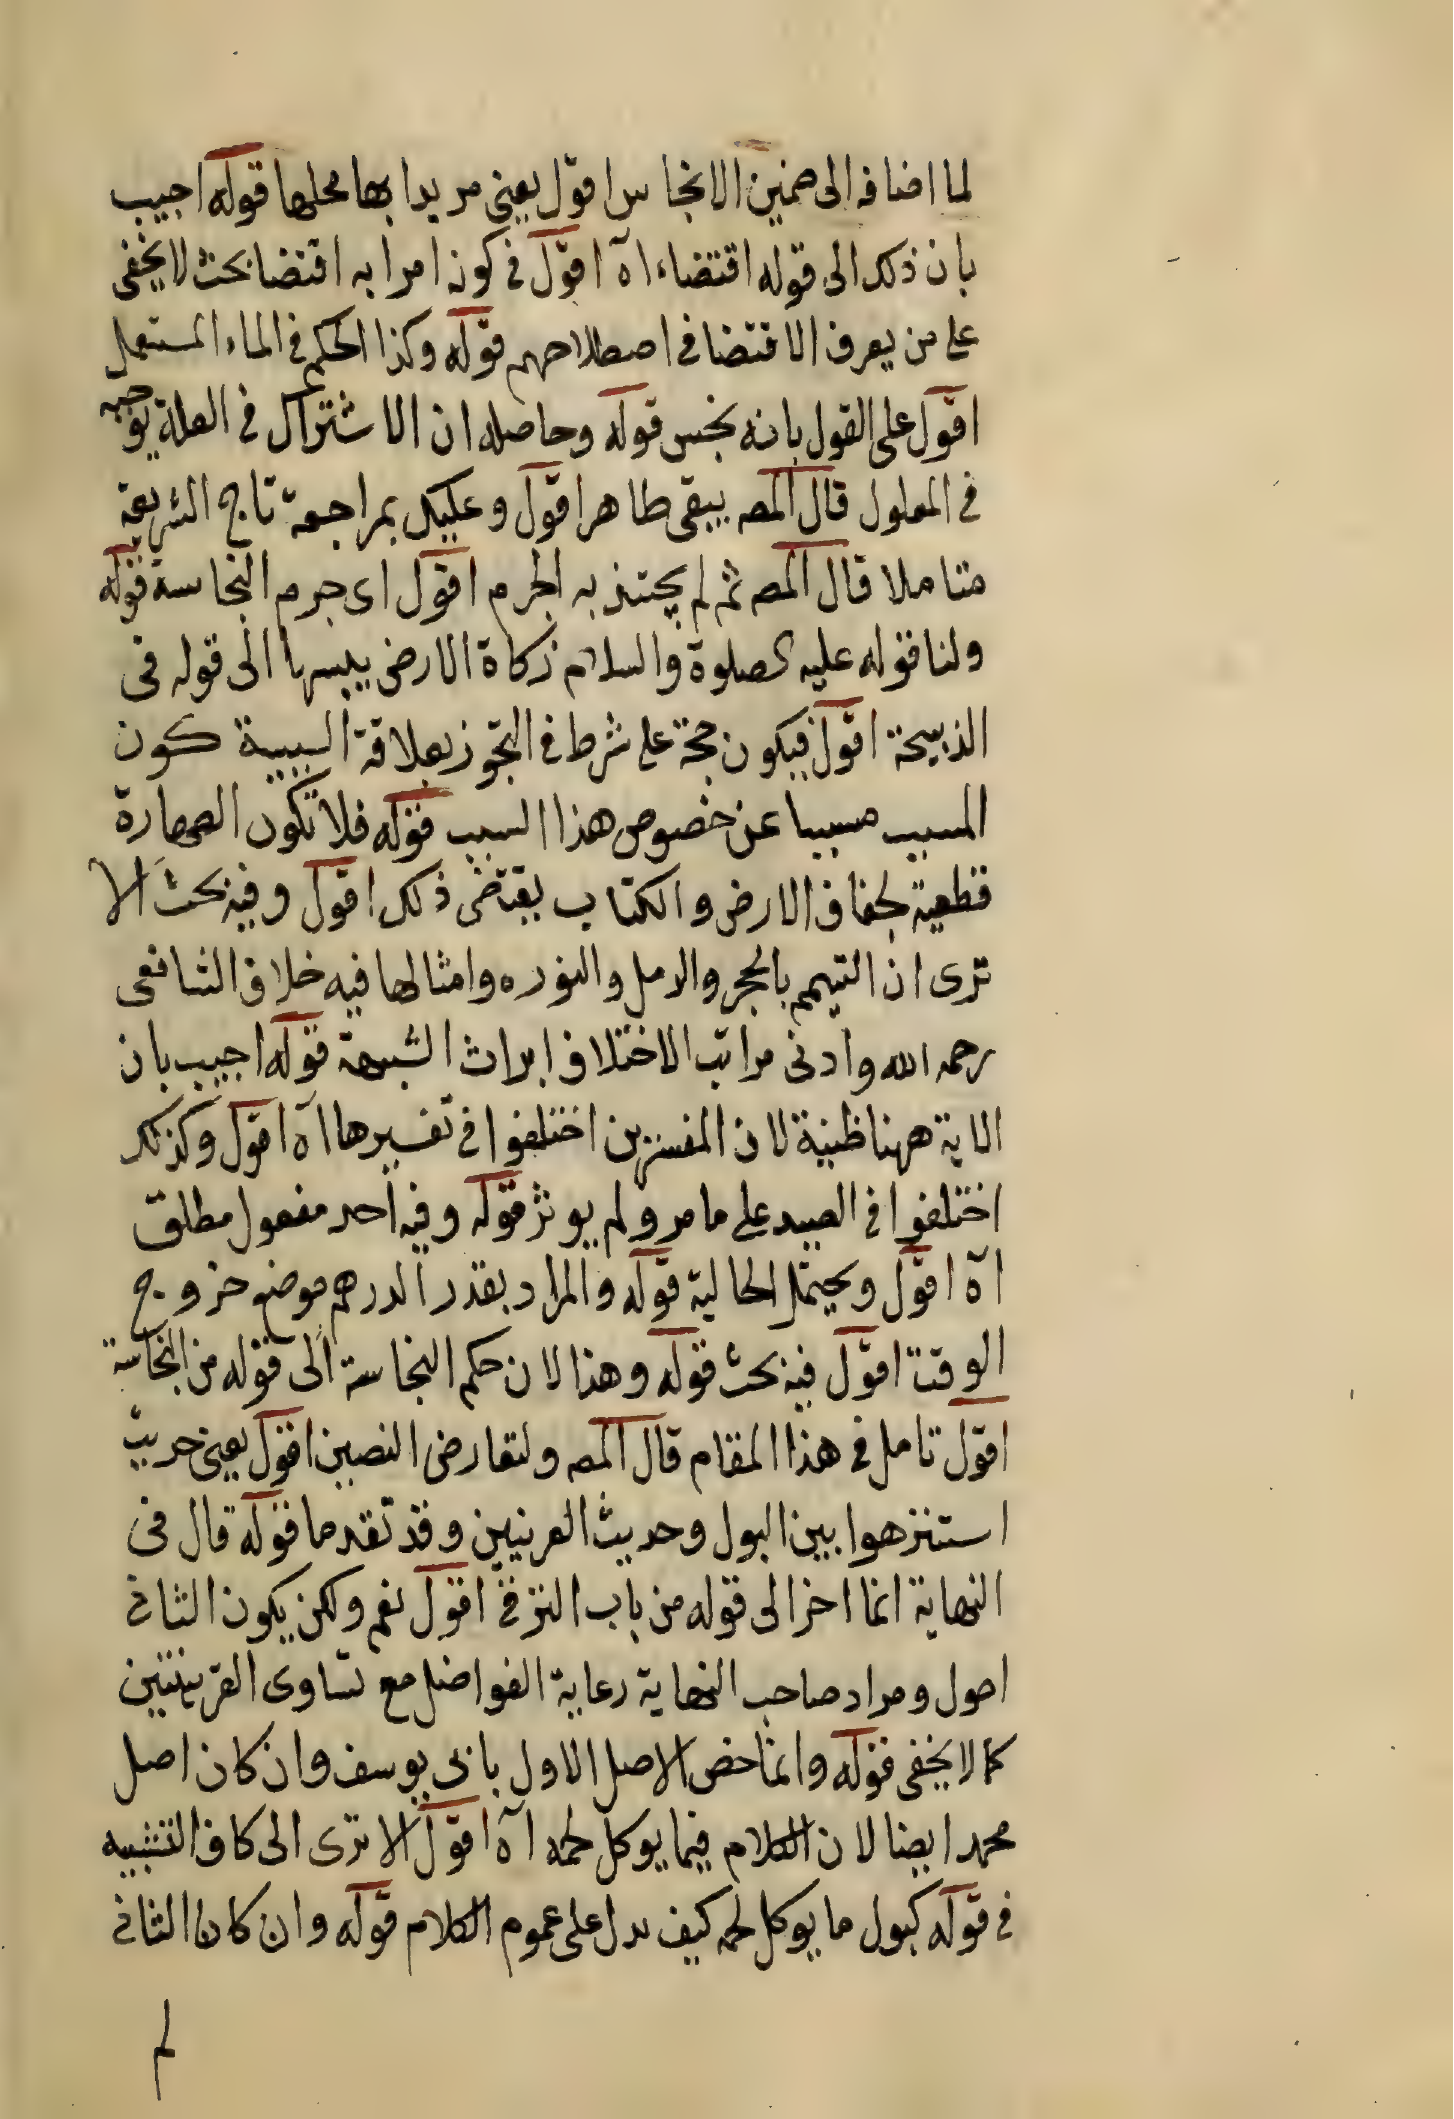 لما اضافه الى ضمنين الانجاس اقول يعنى مريدا بها محلها قوله اجيب
بان ذلك الى قوله اقتضاء اه اقول فى كونه امرا به اقتضا بحث لا يخفى
على من يعرف الاقتضا فى اصطلاحهم قوله وكذا الحكم فى الماء المستعمل
اقول على القول بانه نجس قوله وحاصله ان الاشتراك فى العلة يوجبه
فى المعلول قال المصـ يبقى طاهرا اقول وعليك بمراجعة تاج الشريعة
متاملا قال المصـ ثم لم يجتذبه الجرم اقول اى جرم النجاسة قوله
ولنا قوله عليه الصلوة والسلام زكاة الارض يبسها الى قوله فى
الذبيحة اقول فيكون حجة على شرط فى التجوز بعلاقة السببية كون
المسبب مسببا عن خصوص هذا السبب قوله فلا تكون الطهارة
قطعية بجفاف الارض والكتاب يقتضى ذلك اقول وفيه بحث الا
ترى ان التيمم بالحجر والرمل والنوره وامثالها فيه خلاف الشافعى
رحمه الله وادنى مراتب الاختلاف ايراث الشبهة قوله اجيب بان
الاية ههنا ظنية لان المفسرين اختلفوا فى تفسيرها اه اقول وكذلك
اختلفوا فى الصيد على ما مر ولم يوثر قوله وفيه احد مفعول مطلق
اه اقول ويحتمل الحالية قوله والمراد بقدر الدرهم موضع خروج
الوقت اقول فيه بحث قوله وهذا لان حكم النجاسة الى قوله من النجاسة
اقول تامل فى هذا المقام قال المصـ ولتعارض النصين اقول يعنى حديث
استنزهوا بين البول وحديث العرنيين وقد تقدما قوله قال فى
النهاية انما اخر الى قوله من باب الترقى اقول نعم ولكن يكون الثانى
اصول ومراد صاحب النهاية رعاية الفواضل مع تساوى القرينتين
كما لا يخفى قوله وانما خص الاصل الاول بابى يوسف وان كان اصل
محمد ايضا لان الكلام فيما يوكل لحمه اه اقول الا ترى الى كاف التشبيه
فى قوله كبول ما يوكل لحمه كيف يدل على عموم الكلام قوله وان كان الثانى
لم